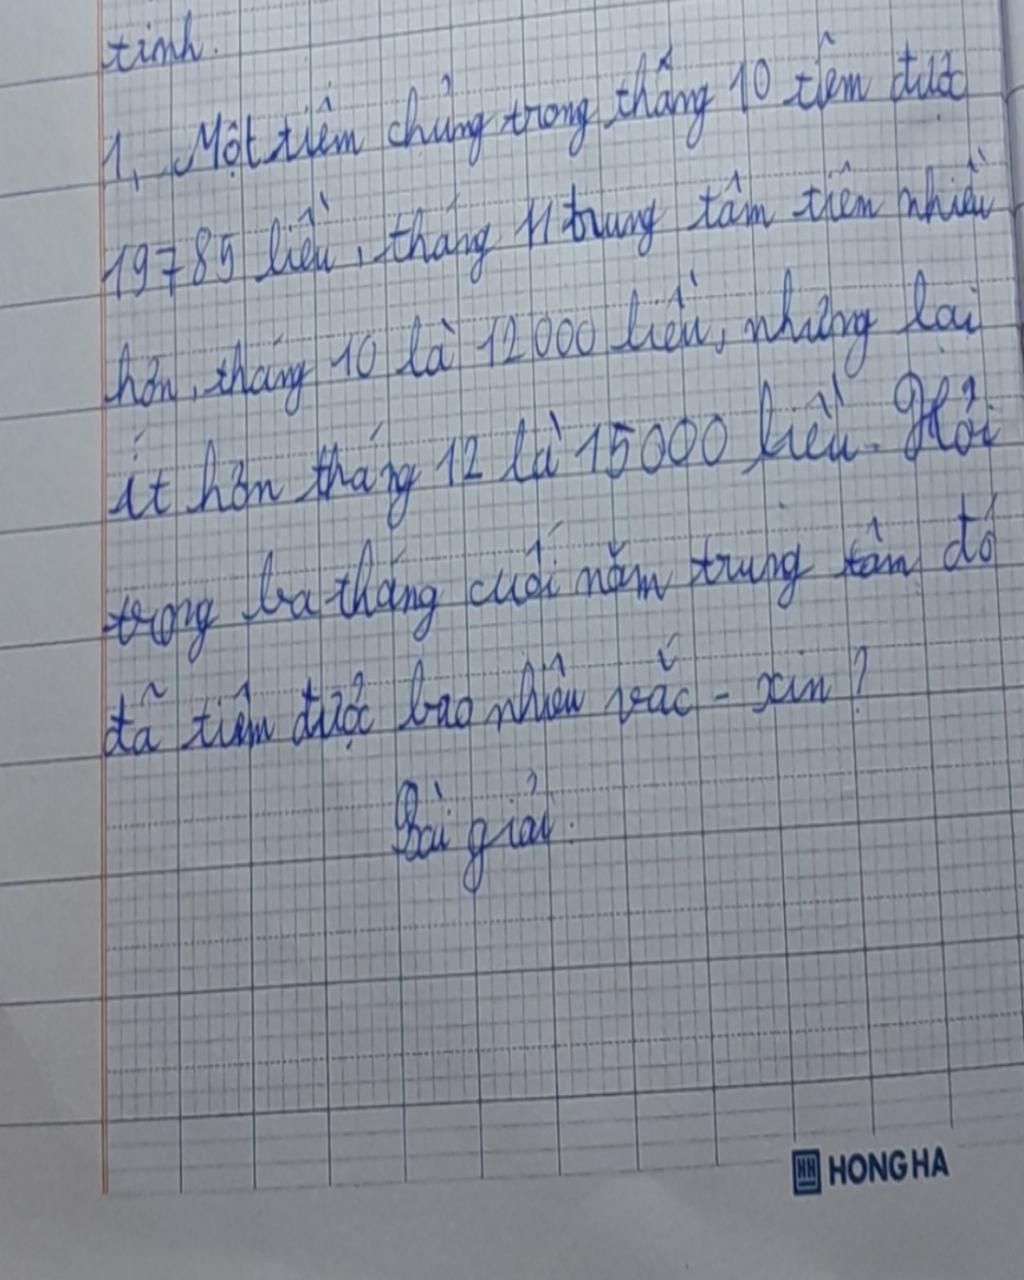 tính.
1, Một tiêm chủng trong tháng 10 tiêm được
19785 liều, tháng 11 trung tâm tiêm nhiều
hơn, tháng 10 là 12000 liều, nhưng lại
ít hơn tháng 12 là 15000 liều. Hỏi
trong ba tháng cuối năm trung tâm đó
đã tiêm được bao nhiêu vắc - xin?
Bài giải.
HONG HA